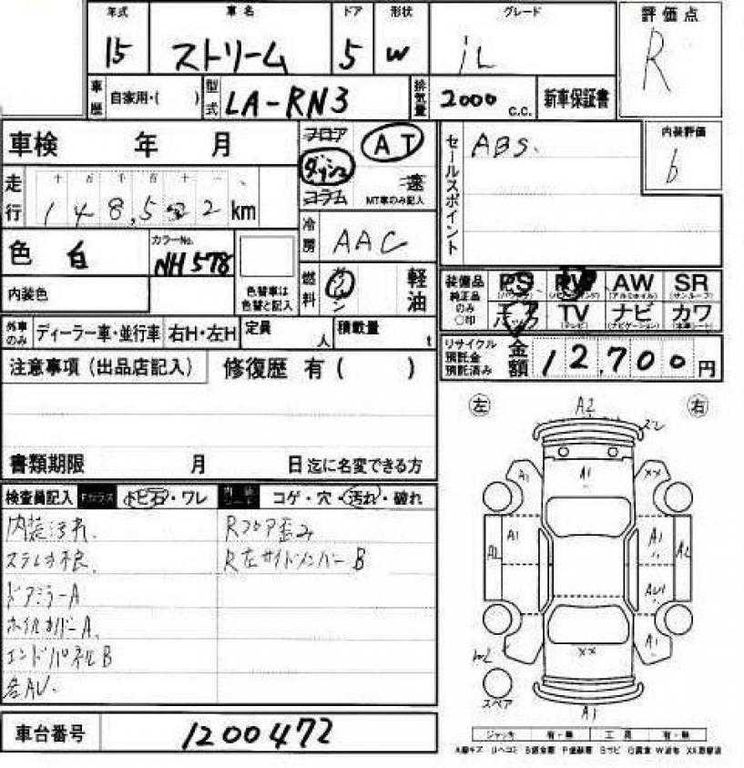 年式 車名 ドア 形状 グレード 評価点
15 ストリーム 5 W iL R
車歴 自家用・( ) 型式 LA-RN3 排気量 2000 c.c. 新車保証書
車検 年 月 フロア ダッシュ コラム AT 速 MT車のみ記入
セールスポイント ABS. 内装評価 b
走行 十 万 千 百 十 一 km
冷房 AAC
色 白 カラーNo. NH578 色替車は色替と記入
内装色 燃料 ガソリン 軽油
装備品 純正品のみ○印 PS (パワステ) PW AW (アルミホイル) SR (サンルーフ)
エアバック TV (テレビ) ナビ (ナビゲーション) カワ (本革シート)
外車のみ ディーラー車・並行車 右H・左H 定員 人 積載量 t
リサイクル預託金預託済み 金額 12,700円
注意事項(出品店記入) 修復歴 有( )
書類期限 月 日迄に名変できる方
左 右
検査員記入 Fガラス トビ石・ワレ 内装シート コゲ・穴・汚れ・破れ
内装汚れ Rフロア歪み
ステレオ不良 R左サイドメンバーB
ドアミラーA
ホイルカバーA
エンドパネルB
各AU
A2
A1
A1 XX
A1 A1
AU1
A1
XX
スペア
A1
車台番号 1200472
ジャッキ 有・無 工具 有・無